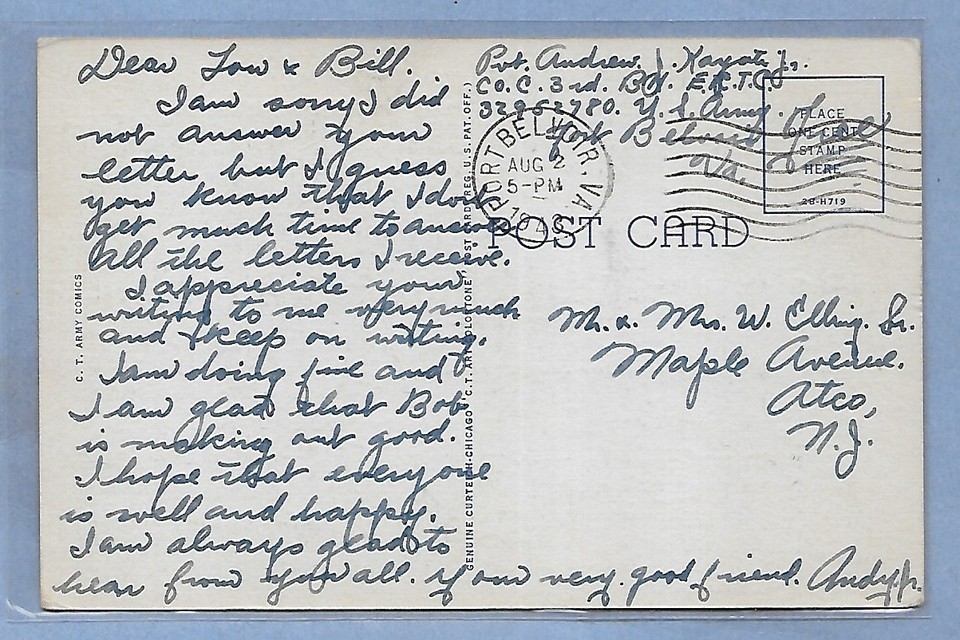 Dear Lou & Bill.
I am sorry I did
not answer your
letter but I guess
you know that I don't
get much time to answer
all the letters I receive.
I appreciate your
writing to me very much
and keep on writing.
I am doing fine and
I am glad that Bob
is making out good.
I hope that everyone
is well and happy.
I am always glad to
hear from you all. your very good friend. Andy Jr.
C. T. ARMY COMICS
GENUINE CURTEICH-CHICAGO "C. T. ART-COLORTONE" POST CARD (REG. U.S. PAT. OFF.)
Pvt. Andrew J. Jr.
Co. C. 3rd. Bn. E.R.T.C.
U. S. Army.
Fort Belvoir
Va.
Free
FORT BELVOIR, VA.
AUG 2
5-PM
PLACE
ONE CENT
STAMP
HERE
2B-H719
POST CARD
Mr. & Mrs. W. Sr.
Maple Avenue.
Atco,
N.J.